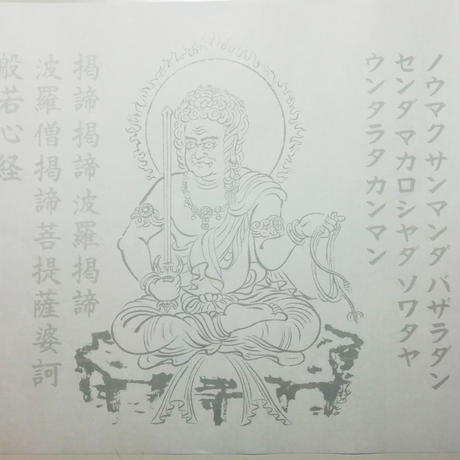 ノウマク サンマンダ バザラダン
センダ マカロシャダ ソワタヤ
ウンタラタ カンマン
掲諦掲諦波羅掲諦
波羅僧掲諦菩提薩婆訶
般若心経